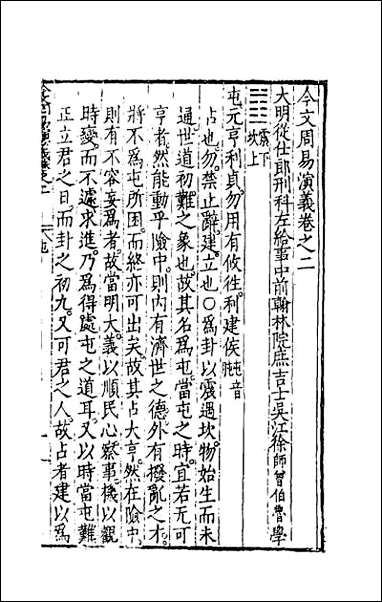 今文周易演義卷之二
大明從仕郎刑科左給事中前翰林院庶吉士吳江徐師曾伯魯學
震下
坎上
屯元亨利貞勿用有攸往利建侯屯音
占也勿禁止辭建立也○為卦以震遇坎物始生而未
通世道初難之象也故其名為屯當屯之時宜若無可
亨者然能動乎險中則內有濟世之德外有撥亂之才
將不為屯所困而終亦可出矣故其占大亨然在險中
則有不容妄為者故當明大義以順民心察事機以觀
時變而不遽求進乃為得處屯之道耳又以時當屯難
正立君之日而卦之初九又可君之人故占者建以為